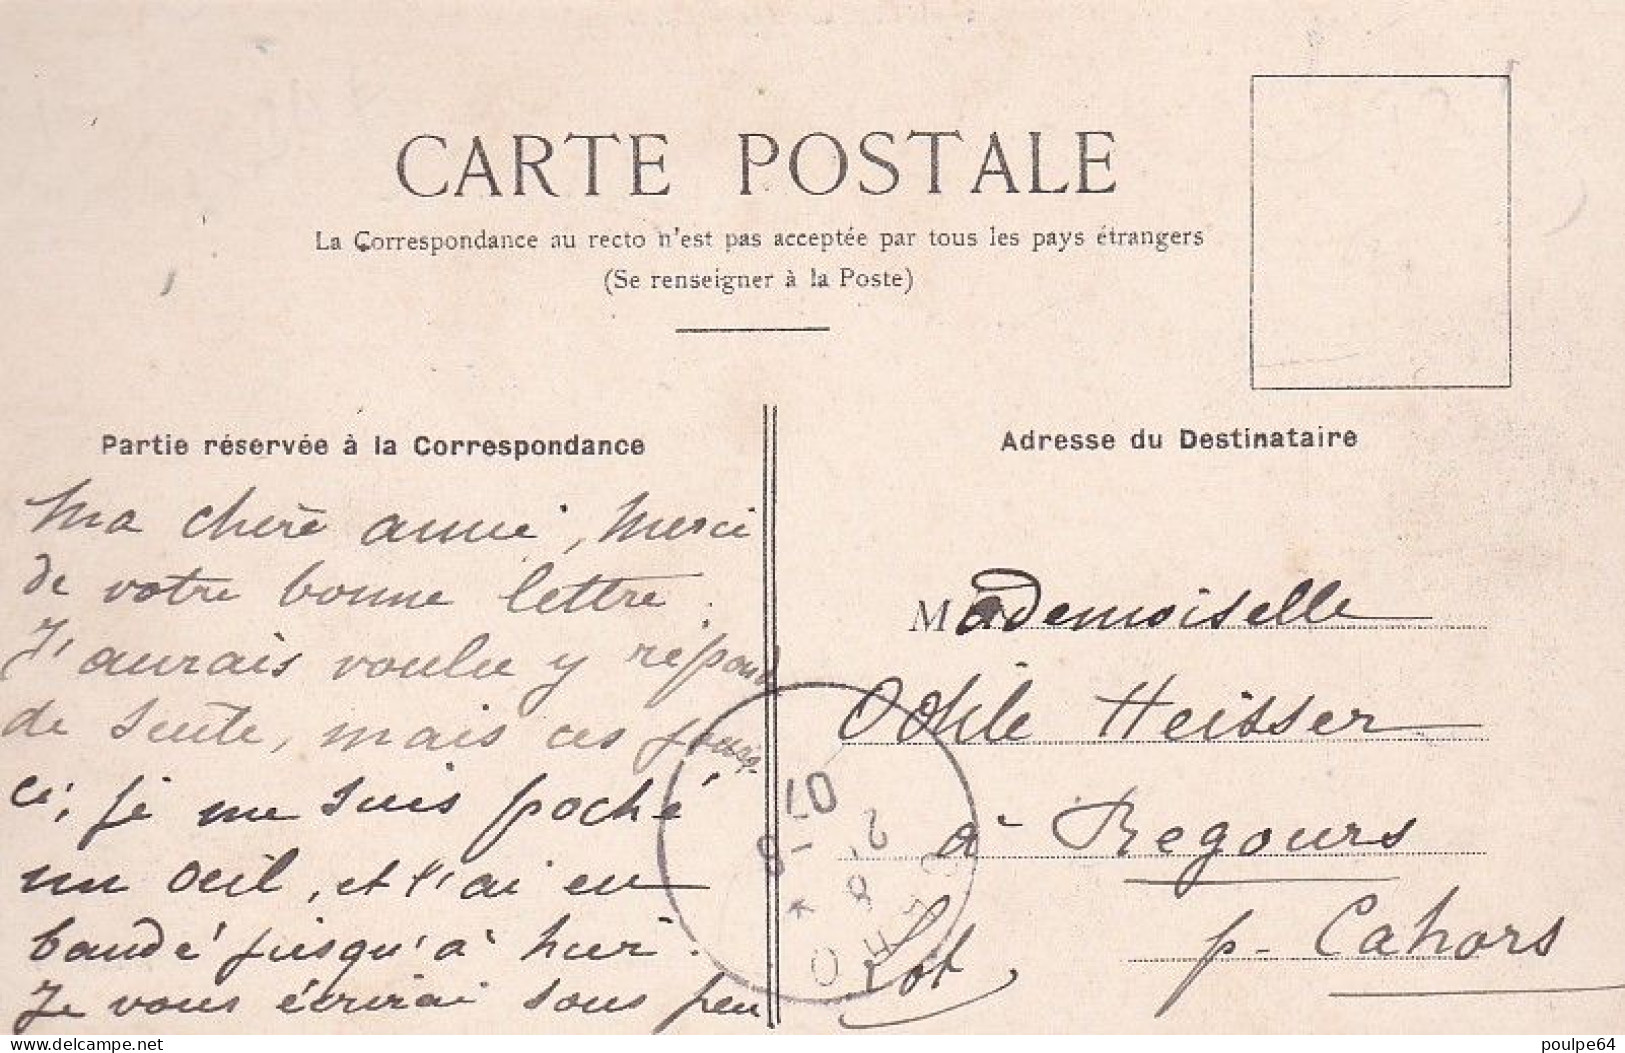 CARTE POSTALE
La Correspondance au recto n'est pas acceptée par tous les pays étrangers
(Se renseigner à la Poste)
Partie réservée à la Correspondance
Ma chère amie, Merci
de votre bonne lettre.
J'aurais voulu y répon
de suite, mais ces jours
ci, je me suis poché
un oeil, et l'ai eu
bandé jusqu'à hier.
Je vous écrirai sous peu
Adresse du Destinataire
Mademoiselle
Odile Heisser
à Regours
p. Cahors
Lot
07
delcampe.net
poulpe64